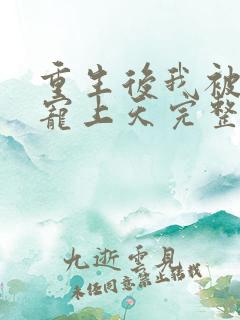 重生後我被
寵上天完整
九逝雲見
未經同意禁止轉載